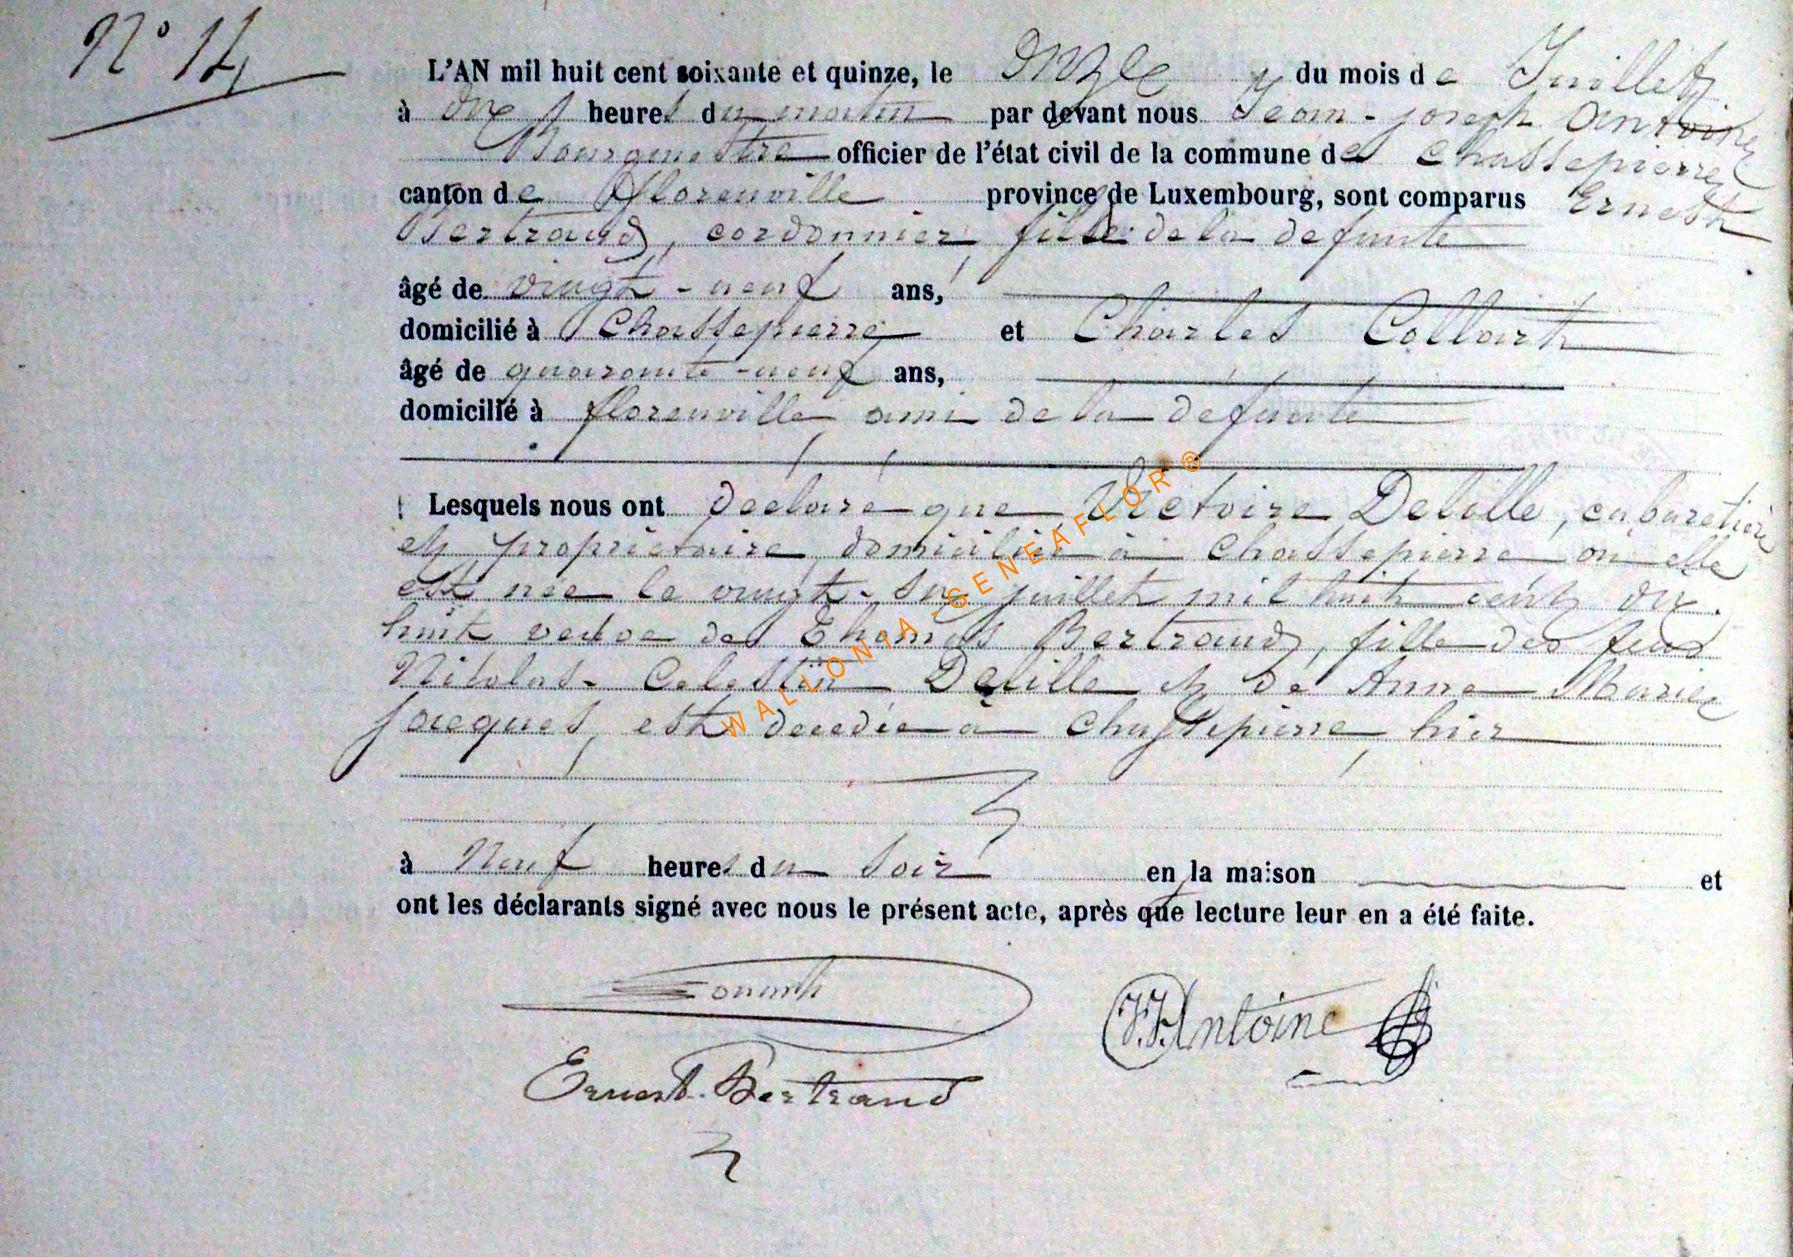 N° 14
L'AN mil huit cent soixante et quinze, le onze du mois de Juillet
à dix heures du matin par devant nous Jean-joseph Antoine
Bourgmestre officier de l'état civil de la commune de Chassepierre
canton de florenville province de Luxembourg, sont comparus Ernest
Bertrand, cordonnier, fils de la defunte
âgé de vingt-neuf ans,
domicilié à Chassepierre et Charles Collart
âgé de quarante-neuf ans,
domicilié à florenville ami de la defunte
Lesquels nous ont declaré que Victoire Delille, cabaretière
et propriétaire domiciliée à Chassepierre où elle
est née le vingt-six juillet mil huit cent dix
huit veuve de Thomas Bertrand, fille des feus
Nicolas-Celestin Delille et de Anne Marie
jacques, est decedée à Chassepierre, hier
à Neuf heures du soir en la maison et
ont les déclarants signé avec nous le présent acte, après que lecture leur en a été faite.
J.J. Antoine
Ernest Bertrand
WALLONIA-GENEAFLOR ®